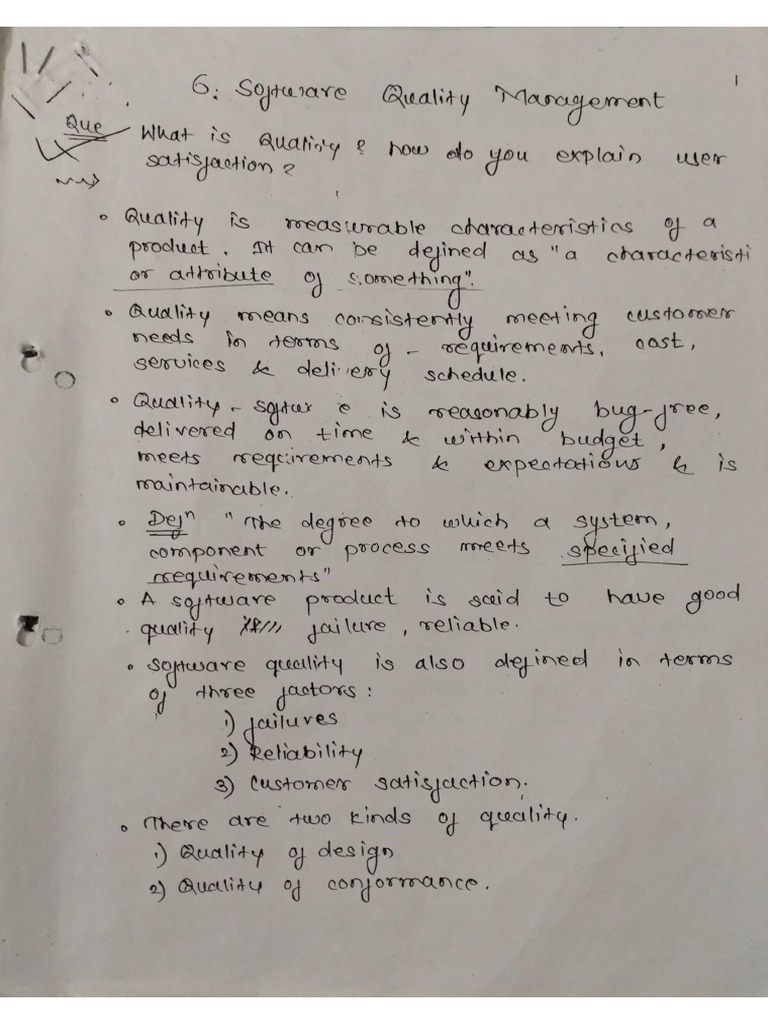 1
6. Software Quality Management
Que What is Quality? how do you explain user
satisfaction?
• Quality is measurable characteristics of a
product. It can be defined as "a characteristi
or attribute of something".
• Quality means consistently meeting customer
needs in terms of - requirements, cost,
services & delivery schedule.
• Quality - softwre is reasonably bug-free,
delivered on time & within budget,
meets requirements & expectations & is
maintainable.
• Defn "The degree to which a system,
component or process meets specified
requirements"
• A software product is said to have good
quality failure, reliable.
• software quality is also defined in terms
of three factors:
1) failures
2) Reliability
3) Customer satisfaction.
• There are two kinds of quality.
1) Quality of design
2) Quality of conformance.